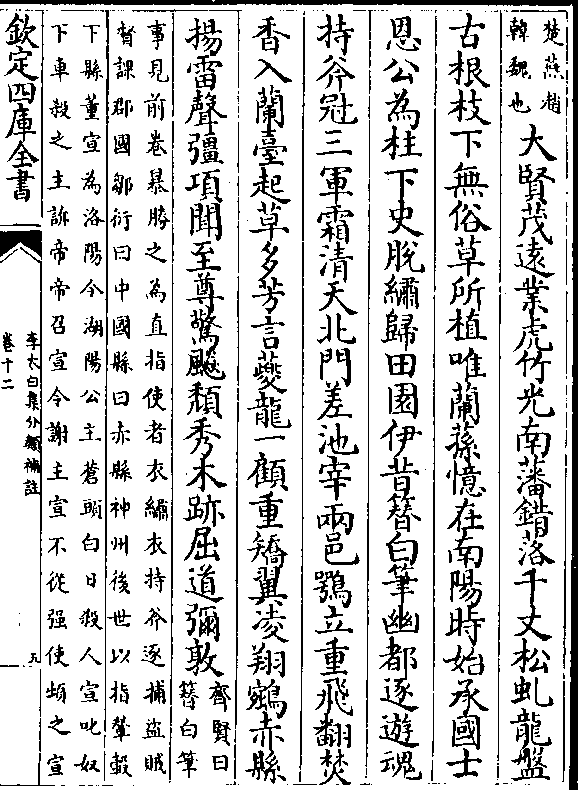 楚燕趙
韓魏也
大賢茂遠業虎竹光南藩錯落千丈松虬龍盤
古根枝下無俗草所植唯蘭蓀憶在南陽時始承國士
恩公為柱下史脫繡歸田園伊昔簪白筆幽都逐遊魂
持斧冠三軍霜清天北門差池宰兩邑鶚立重飛翻焚
香入蘭臺起草多芳言夔龍一顧重矯翼凌翔鵷赤縣
揚雷聲彊項聞至尊驚飈頹秀木跡屈道彌敦
齊賢曰
簪白筆
事見前卷暴勝之為直指使者衣繡衣持斧逐捕盜賊
督課郡國鄒衍曰中國縣曰赤縣神州後世以指輦轂
下縣董宣為洛陽令湖陽公主蒼頭白日殺人宣叱奴
下車殺之主訴帝帝召宣令謝主宣不從强使頓之宣
欽定四庫全書
李太白集分類補註
卷十二
九